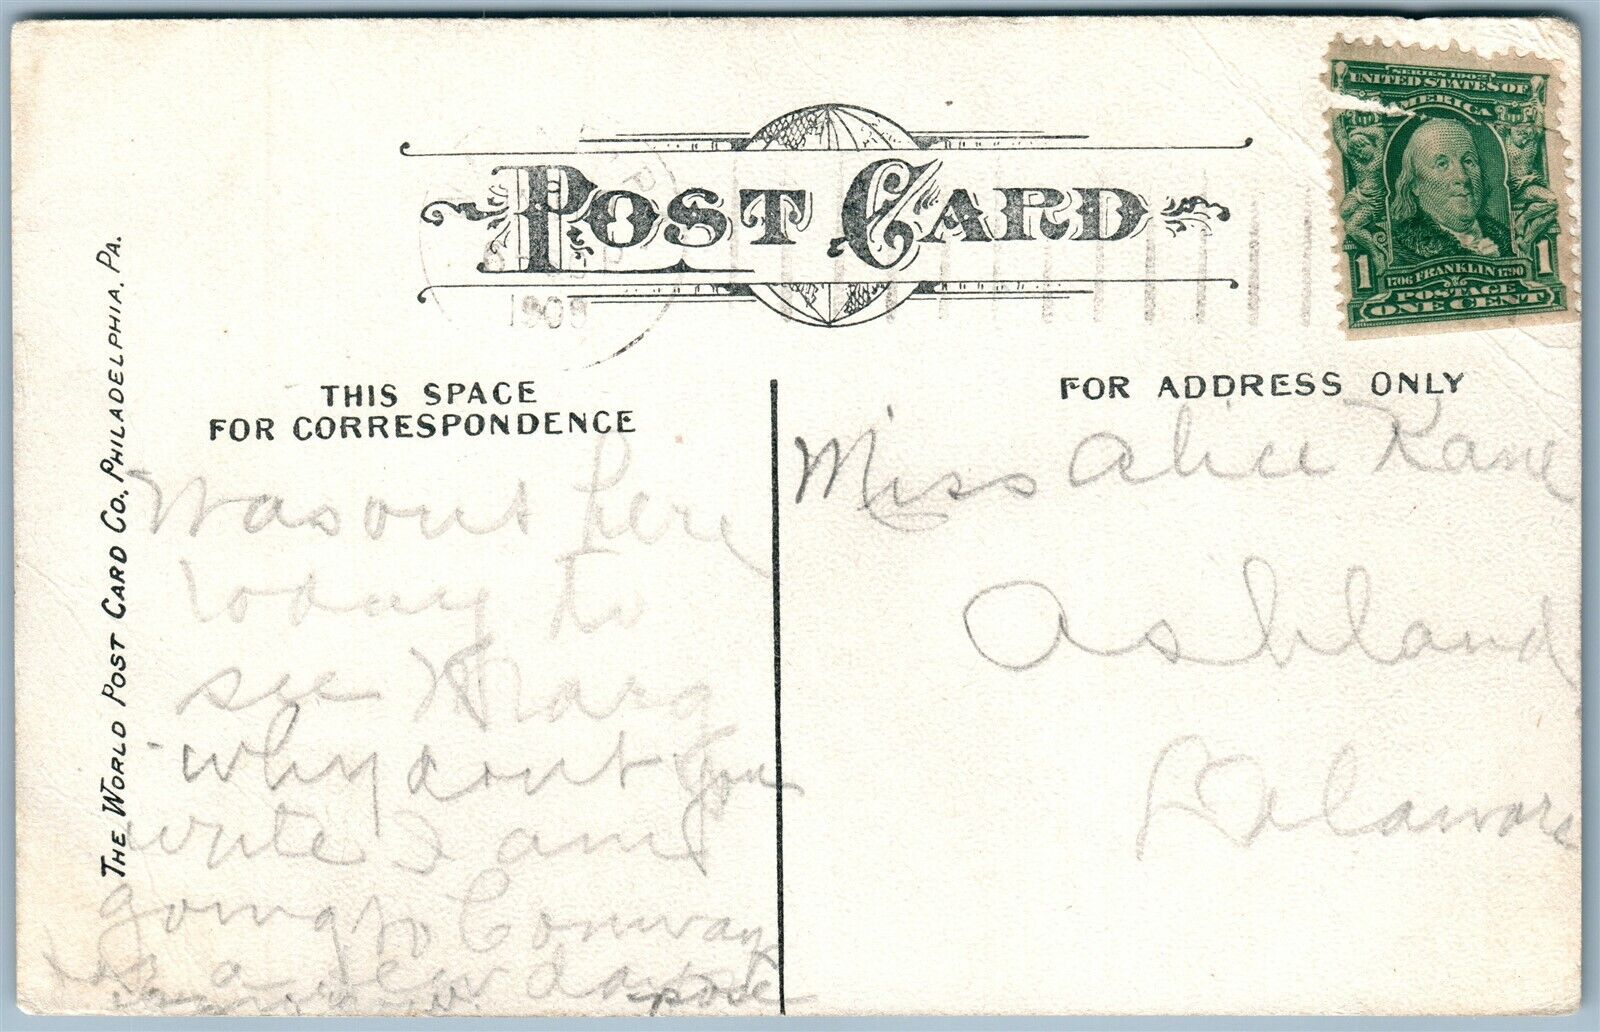 SERIES 1902
UNITED STATES OF
AMERICA
1706 FRANKLIN 1790
1 1
POSTAGE
ONE CENT
POST CARD
1908
THE WORLD POST CARD CO., PHILADELPHIA, PA.
THIS SPACE
FOR CORRESPONDENCE
Was out here
today to
see Marg
why dont you
write I am
going to Conway
for a few days
FOR ADDRESS ONLY
Miss Alice Kane
Ashland
Delaware